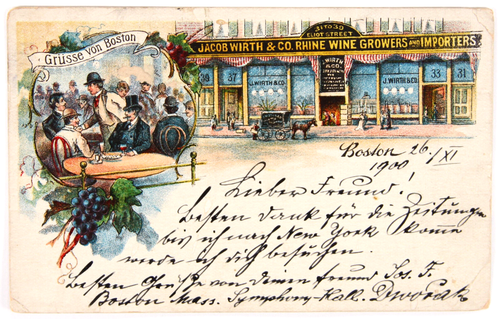 Grüsse von Boston
31 TO 39
ELIOT STREET
JACOB WIRTH & CO. RHINE WINE GROWERS AND IMPORTERS
39
37
J. WIRTH & CO.
J. WIRTH
& CO.
J. WIRTH & CO.
33
31
Boston 26./XI
1900
Lieber Freund!
besten Dank für die Zeitungen
bis ich nach New York komme
werde ich dich besuchen.
besten Grüsse von deinem freund Jos. F.
Boston Mass. Symphony-Hall. Dwořak